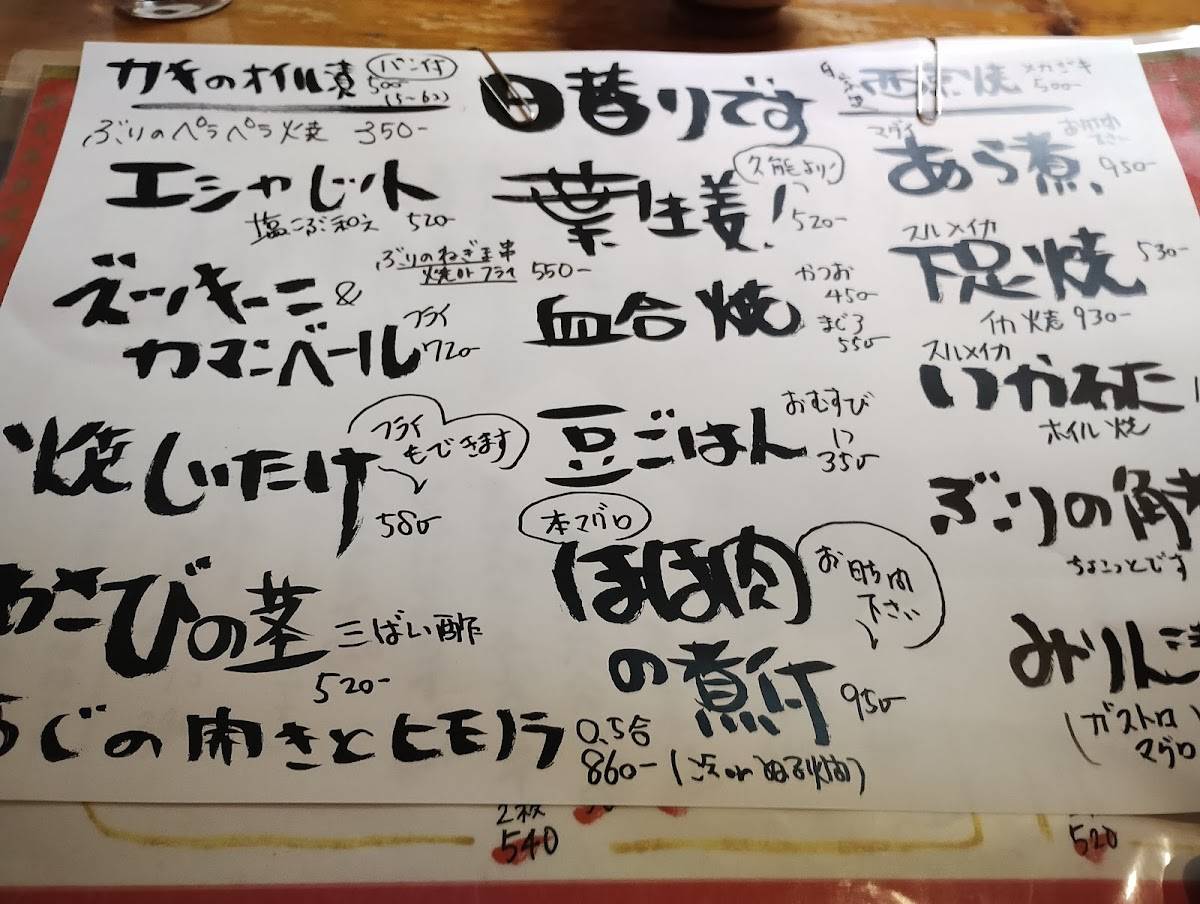 カキのオイル漬 パン付 500
(5~6コ)
ぶりのペラペラ焼 350-
エシャレット
塩こぶ和え 520-
ズッキーニ&
ぶりのねぎま串
焼orフライ 550-
カマンベール フライ 720-
焼しいたけ
フライ
もできます
580-
わさびの茎 三ばい酢
520-
の開きとヒモノラ 0.5合
860-
日替りです
葉生姜! 久能より!
520-
血合焼
かつお
450
まぐろ
550
豆ごはん おむすび
1つ
350
本マグロ
ほほ肉
の煮付 950-
お時間
下さい
西京焼 メカジキ
500-
マダイ
あら煮 950-
お時間
下さい
スルメイカ
下足焼 530-
イカ焼 930-
スルメイカ
いかわた
ホイル焼
ぶりの角
ちょこっとです
みりん
(ガストロ
マグロ
2枚
540
520